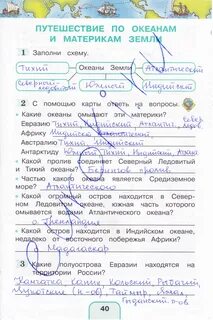 ПУТЕШЕСТВИЕ ПО ОКЕАНАМ
И МАТЕРИКАМ ЗЕМЛИ
1 Заполни схему.
Тихий Океаны Земли Атлантический
Северный Ледовитый Южный Индийский
2 С помощью карты ответь на вопросы.
• Какие океаны омывают эти материки?
Евразию Тихий, Индийск, Атлантич, Север
Африку Индийский
Австралию Тихий, Индийский
Антарктиду Тихий, Индийский, Атлан
• Какой пролив соединяет Северный Ледовитый
и Тихий океаны? Берингов пролив
• Частью какого океана является Средиземное
море? Атлантического
• Какой огромный остров находится в Северном
Ледовитом океане, южная часть которого
омывается водами Атлантического океана?
о. Гренландия
• Какой остров находится в Индийском океане,
недалеко от восточного побережья Африки?
Мадагаскар
3 Какие полуострова Евразии находятся на
территории России?
Камчатка, Канин, Кольский, Рыбачий,
Чукотский (п-ов), Таймыр, Ямал,
Гыданский п-ов
40